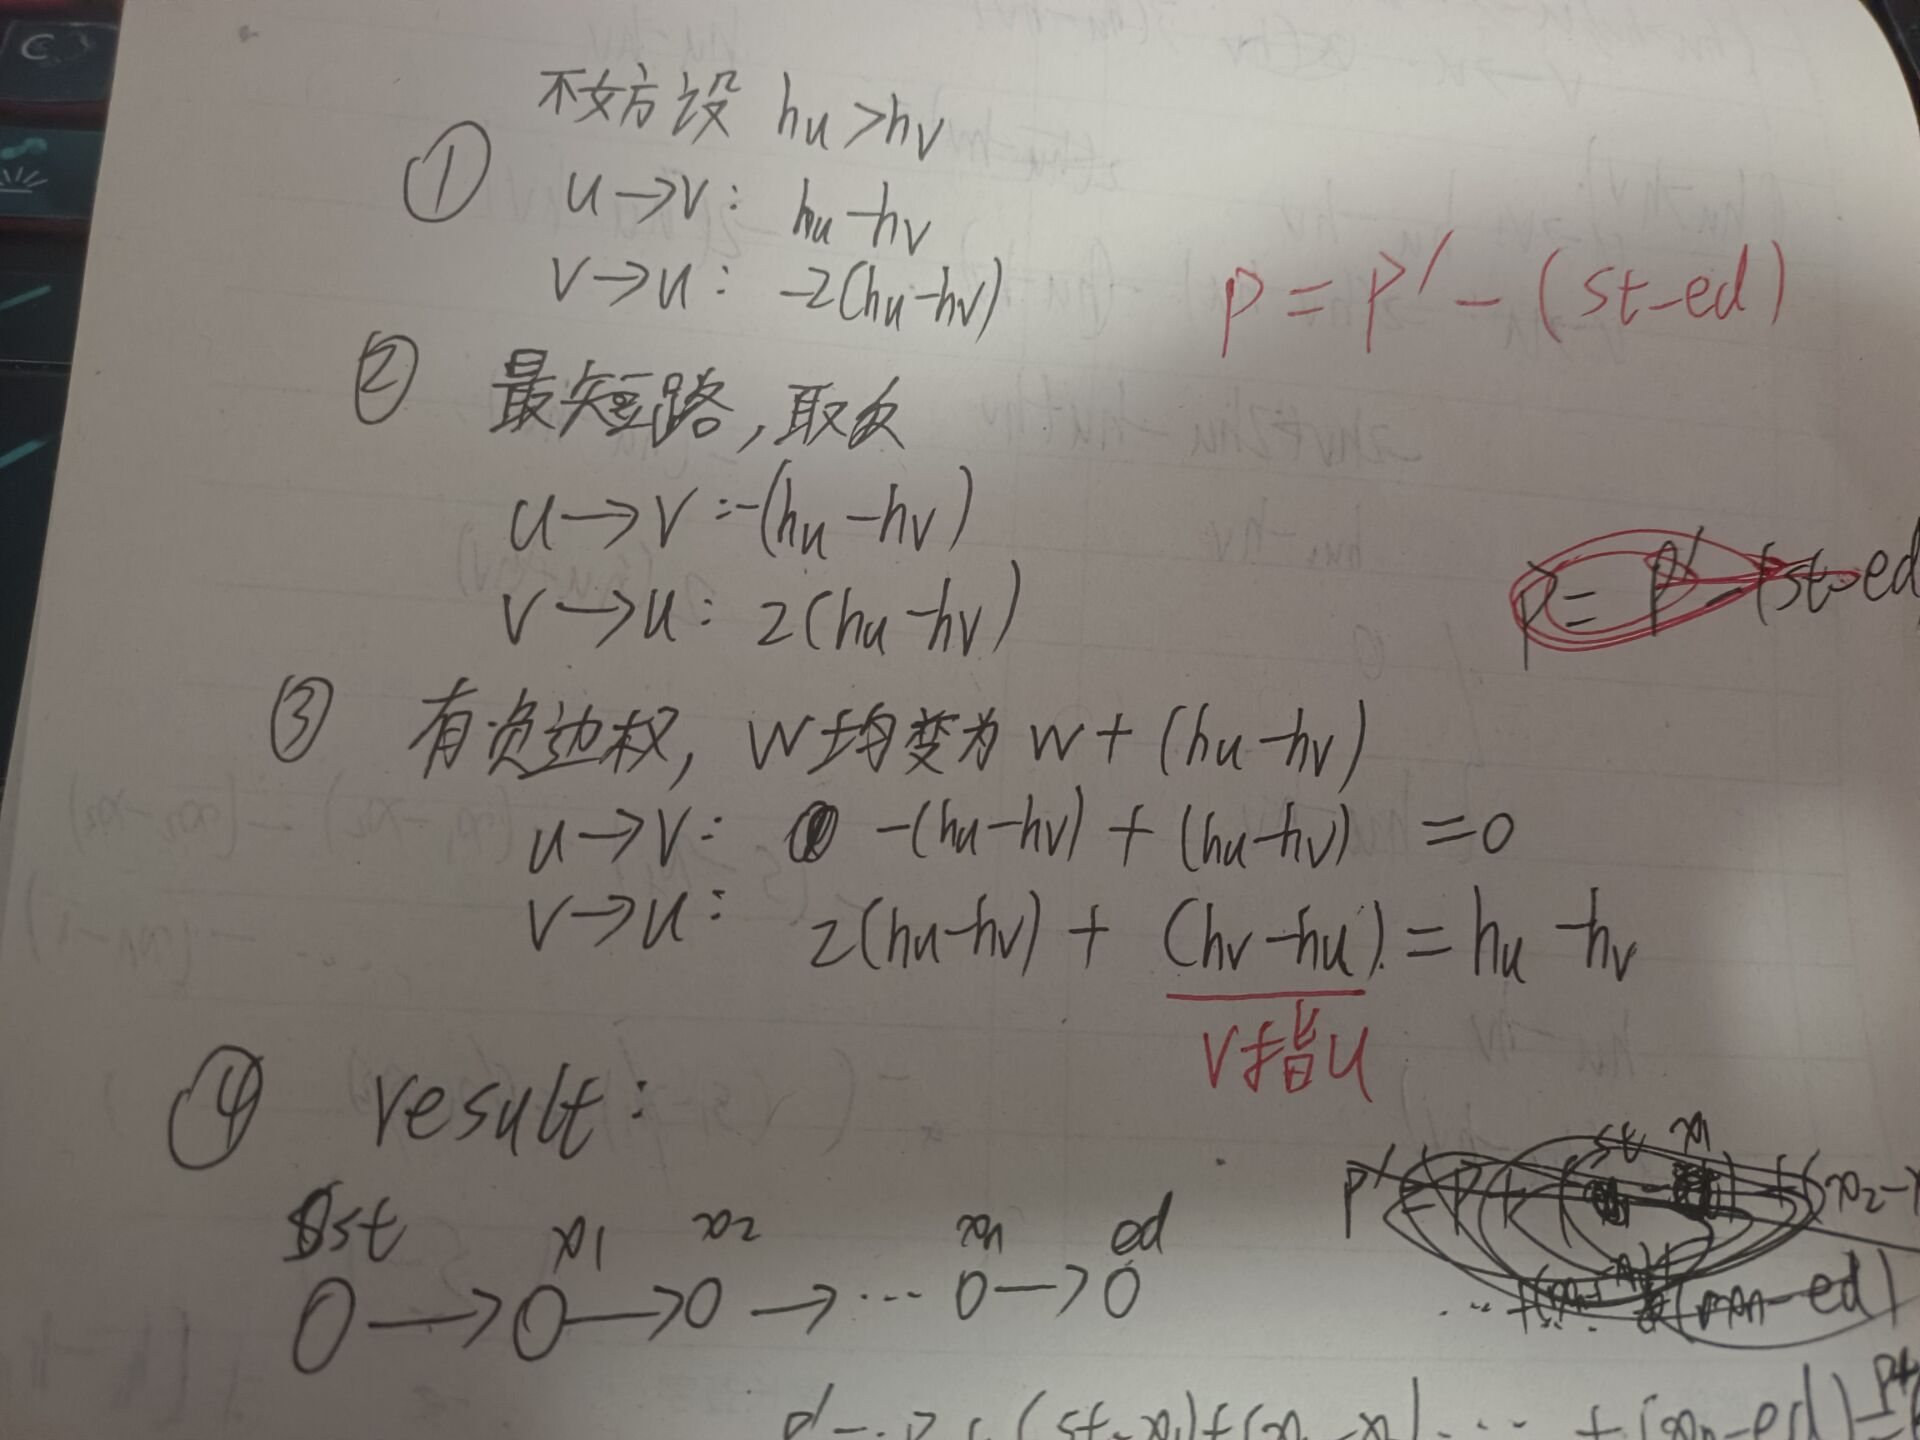 不妨设 hu>hv
① u→v: hu-hv
v→u: -2(hu-hv)
p = p' - (st-ed)
② 最短路,取负
u→v:-(hu-hv)
v→u: 2(hu-hv)
p = p' - (st-ed
③ 有负边权, w均变为 w+(hu-hv)
u→v: -(hu-hv)+(hu-hv) =0
v→u: 2(hu-hv)+(hv-hu)=hu-hv
v指u
④ result:
st x1 x2 xn ed
O→O→O→···O→O